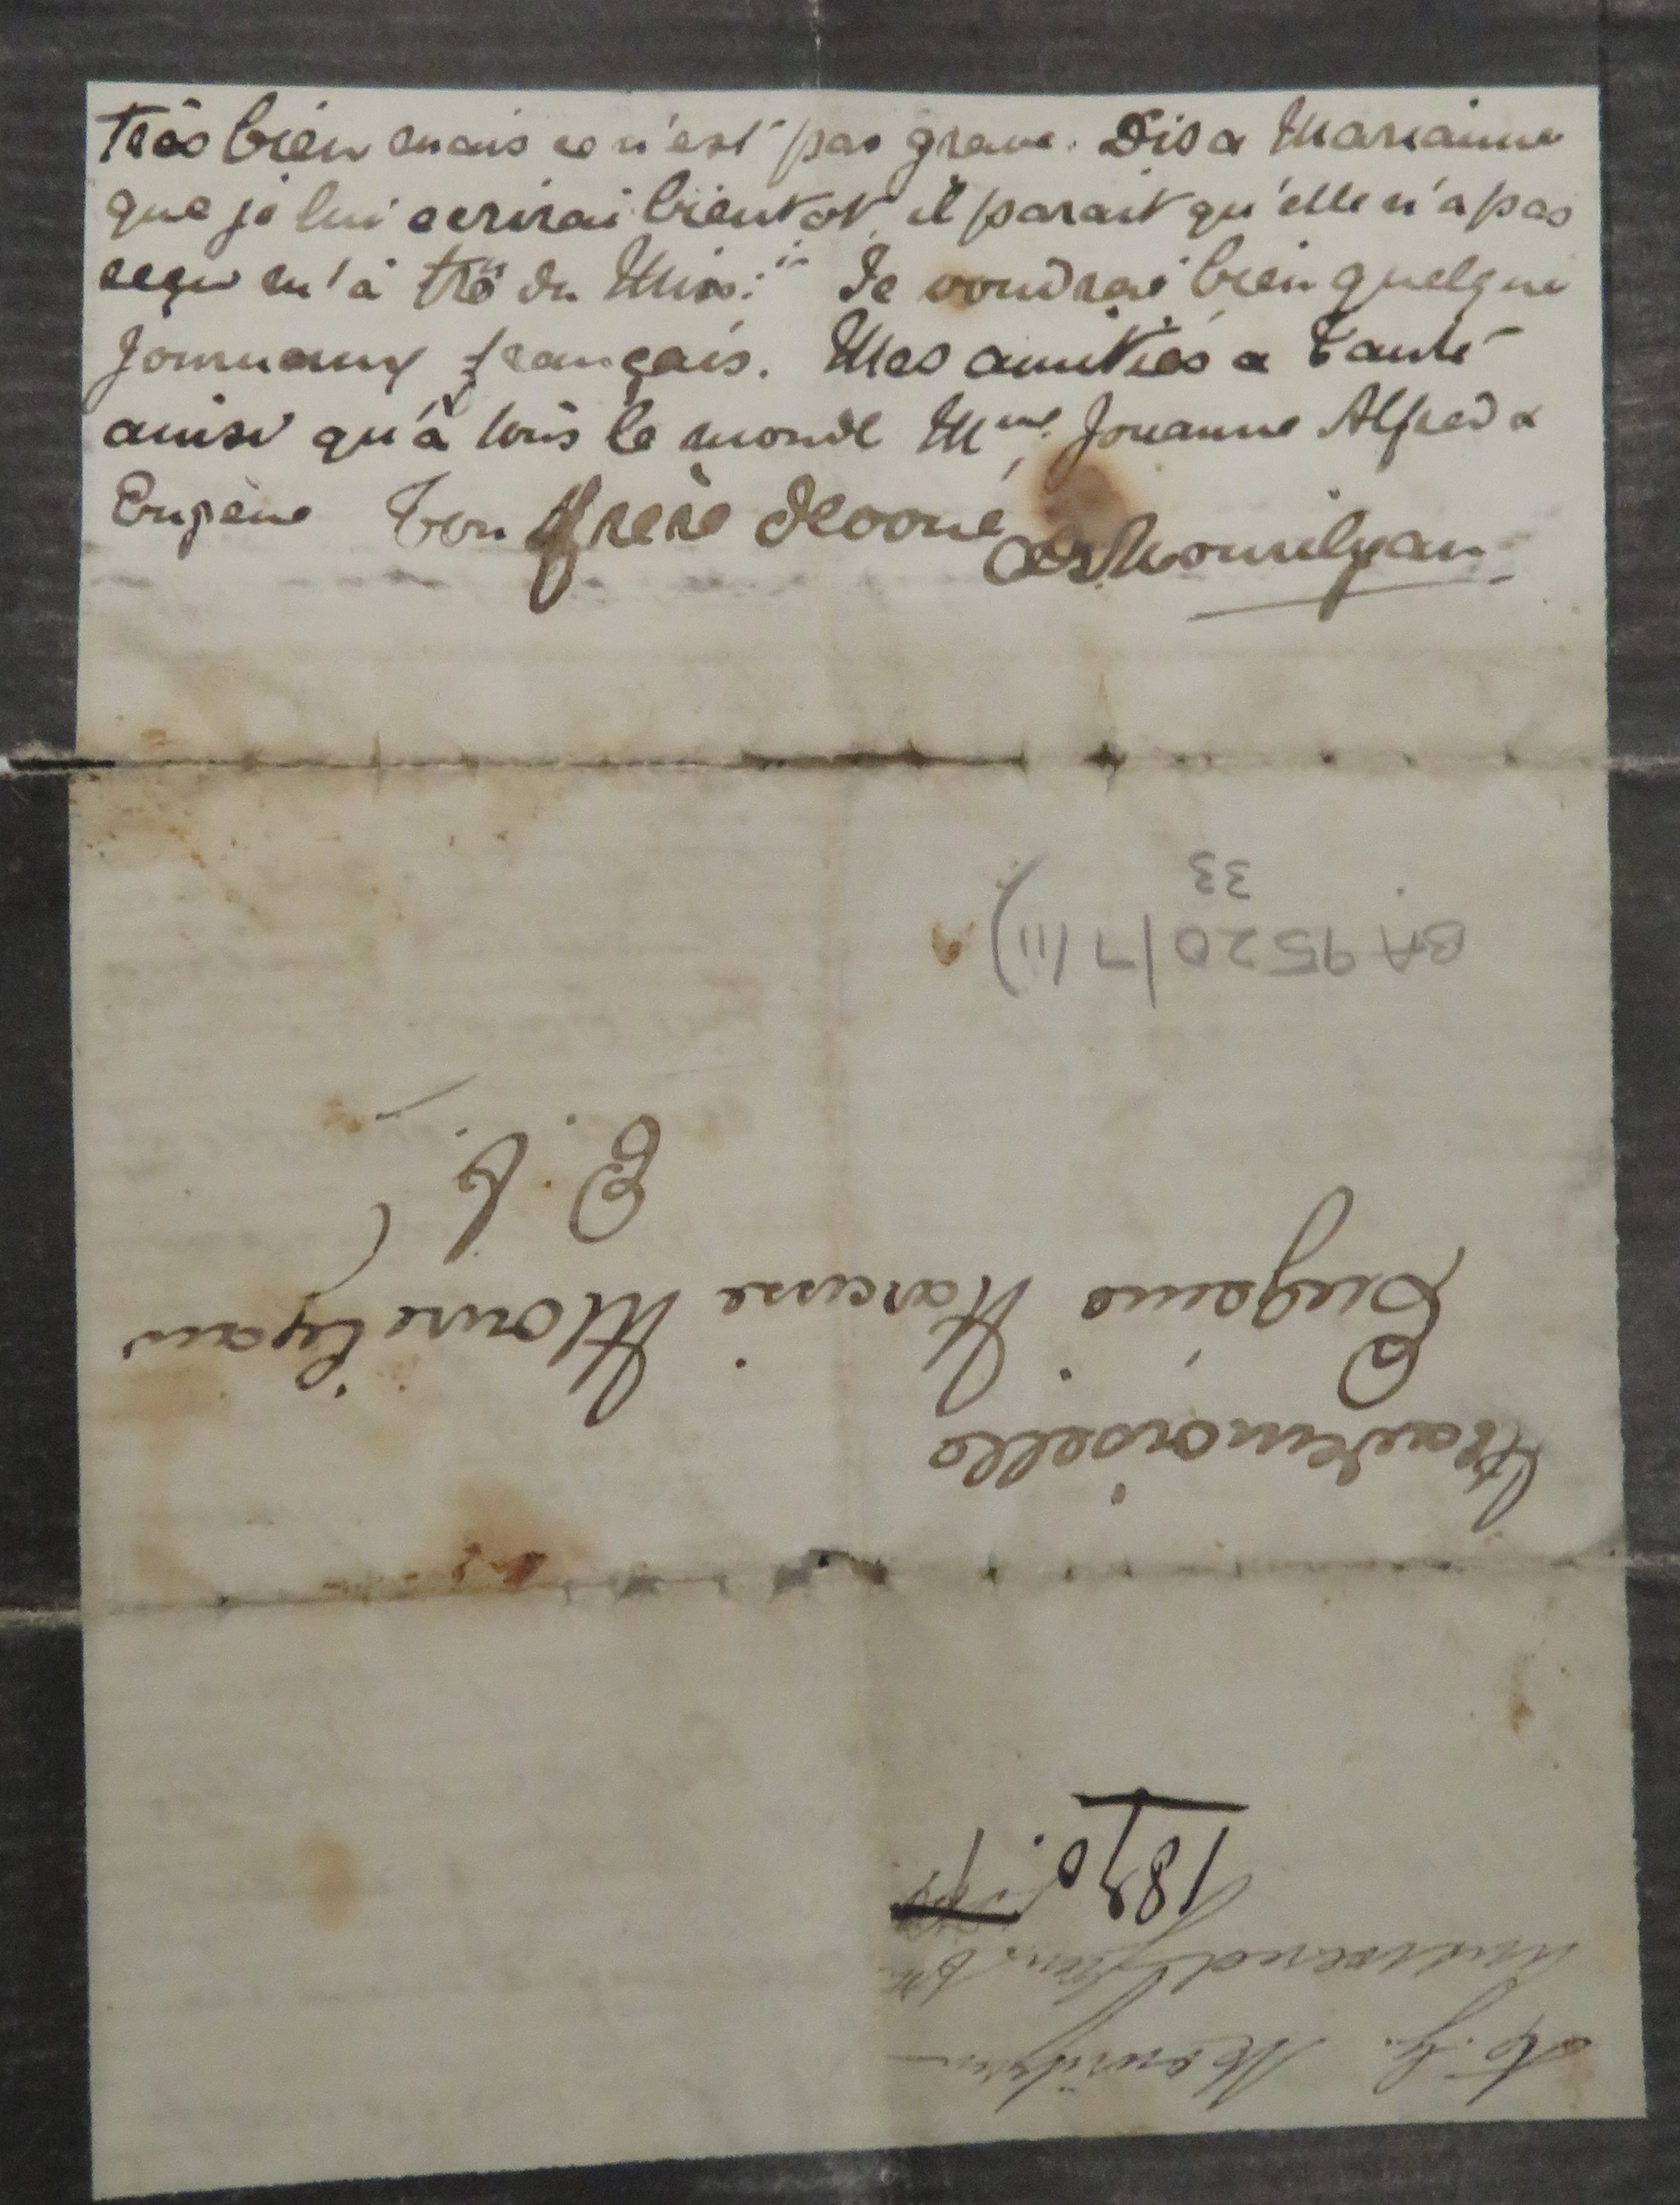 très bien mais ce n'est pas grave. Dis a Marianne
que je lui ecrirai bientot, il parait qu'elle n'a pas
reçu m'a du Je voudrai bien quelque
Journaux français. Mes amitiés a Tante
ainsi qu'à tous le monde Mme. Jouanne Alfred &
Eugène Ton frère devoué
Mourilyan
33
BA 9520/7 (11)
Mademoiselle
Eugénie Narcisse Mourilyan
E. V.
Mourilyan
1870.